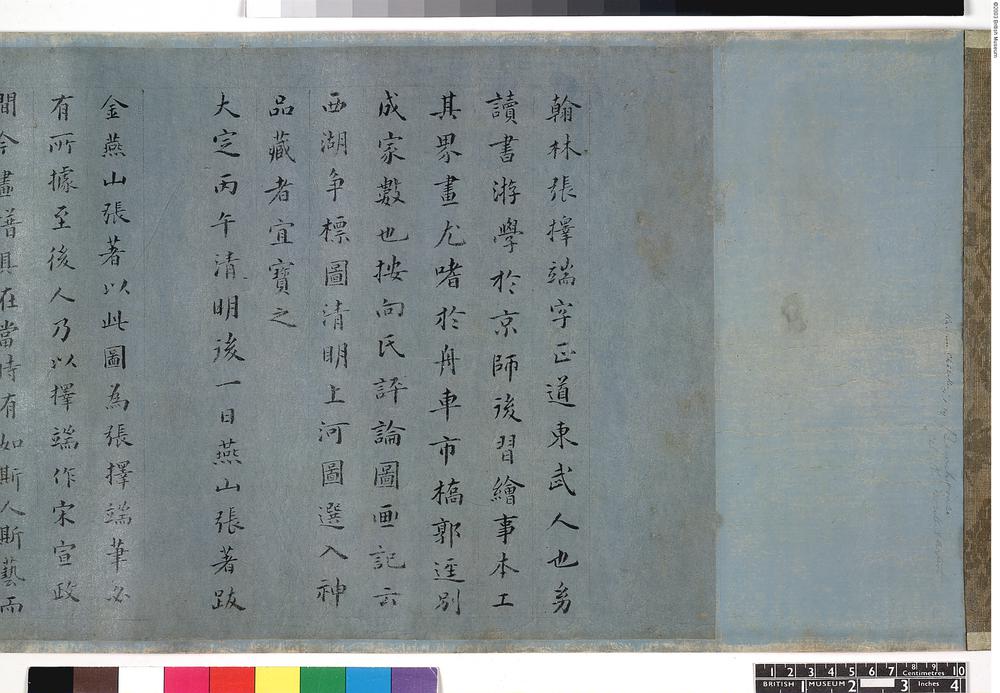 翰林張擇端字正道東武人也㓜
讀書游學於京師後習繪事本工
其界畫尤嗜於舟車市橋郭逕別
成家數也按向氏評論圖画記云
西湖争標圖清明上河圖選入神
品藏者宜寳之
大定丙午清明後一日燕山張著跋
金燕山張著以此圖為張擇端筆必
有所據至後人乃以擇端作宋宣政
間今畫譜具在當時有如斯人斯藝而
©2003 British Museum
1 2 3 4 5 6 7 8 9 10
Centimetres
BRITISH MUSEUM
1 2 3 Inches 4